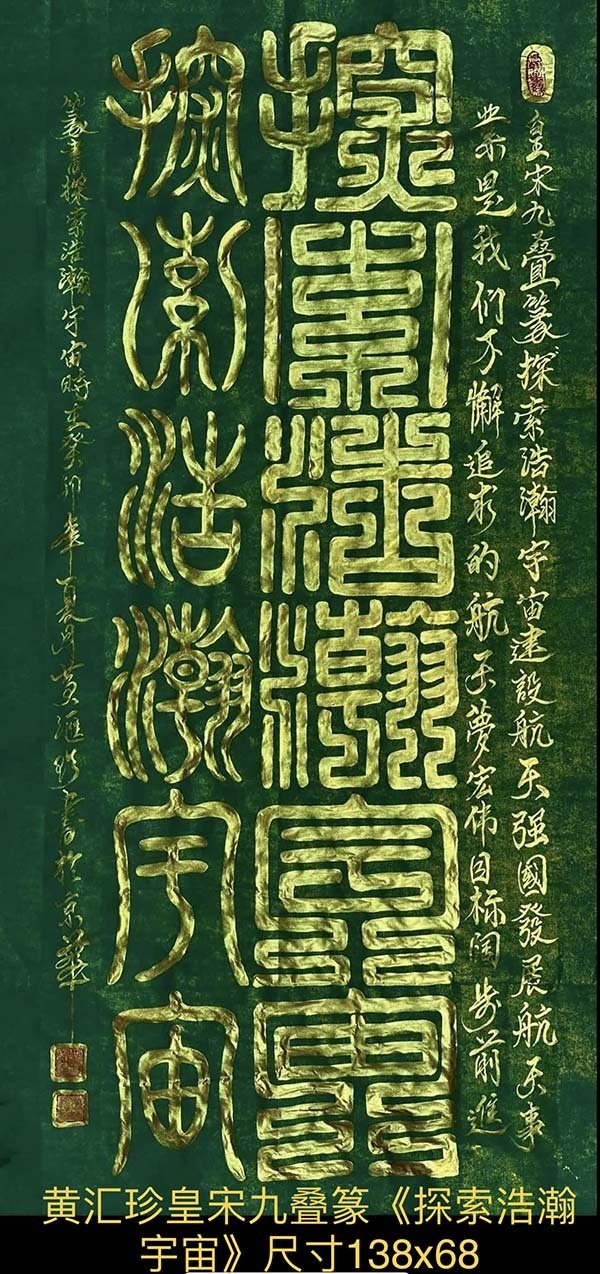 皇宋九叠篆探索浩瀚宇宙建設航天强國發展航天事
業是我们不懈追求的航天夢宏伟目标阔步前進
探索浩瀚宇宙
探索浩瀚宇宙
篆書探索浩瀚宇宙時在癸卯年夏月黄汇珍書於京華
黄汇珍皇宋九叠篆《探索浩瀚
宇宙》尺寸138x68